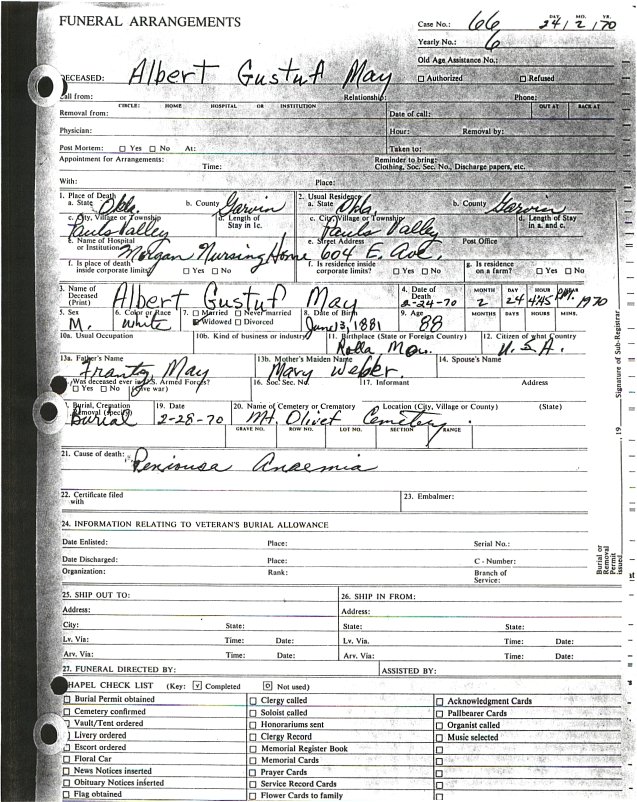 FUNERAL ARRANGEMENTS
Case No.: 66 DAY MO. YR. 24/2/70
Yearly No.: 6
Old Age Assistance No.:
Authorized Refused
DECEASED: Albert Gustuf May
Call from: Relationship: Phone:
CIRCLE: HOME HOSPITAL OR INSTITUTION OUT AT BACK AT
Removal from: Date of call:
Physician: Hour: Removal by:
Post Mortem: Yes No At: Taken to:
Appointment for Arrangements: Reminder to bring:
Time: Clothing, Soc. Sec. No., Discharge papers, etc.
With: Place:
1. Place of Death 2. Usual Residence
a. State Okla. b. County Garvin a. State Okla b. County Garvin
c. City, Village or Township c. Length of Stay in 1c. c. City, Village or Township d. Length of Stay in a. and c.
Pauls Valley Pauls Valley
e. Name of Hospital or Institution Morgan Nursing Home e. Street Address 604 E. Ave. Post Office
f. Is place of death inside corporate limits? Yes No f. Is residence inside corporate limits? Yes No g. Is residence on a farm? Yes No
3. Name of Deceased (Print) Albert Gustuf May 4. Date of Death 2-24-70 MONTH 2 DAY 24 HOUR 4:45 P.M. YEAR 1970
5. Sex M. 6. Color or Race White 7. Married Never married Widowed Divorced 8. Date of Birth June 13, 1881 9. Age 88 MONTHS DAYS HOURS MINS.
10a. Usual Occupation 10b. Kind of business or industry 11. Birthplace (State or Foreign Country) Rolla Mo. 12. Citizen of what Country U.S.A.
13a. Father's Name Frantz May 13b. Mother's Maiden Name Mary Weber. 14. Spouse's Name
Was deceased ever in U.S. Armed Forces? Yes No (give war) 16. Soc. Sec. No. 17. Informant Address
Burial, Cremation Removal (specify) Burial 19. Date 2-28-70 20. Name of Cemetery or Crematory Mt. Olivet Cemetery. Location (City, Village or County) (State)
GRAVE NO. ROW NO. LOT NO. SECTION RANGE
21. Cause of death: Peniousa Anaemia
22. Certificate filed with 23. Embalmer:
24. INFORMATION RELATING TO VETERAN'S BURIAL ALLOWANCE
Date Enlisted: Place: Serial No.:
Date Discharged: Place: C - Number:
Organization: Rank: Branch of Service:
25. SHIP OUT TO: 26. SHIP IN FROM:
Address: Address:
City: State: State: State:
Lv. Via: Time: Date: Lv. Via: Time: Date:
Arv. Via: Time: Date: Arv. Via: Time: Date:
27. FUNERAL DIRECTED BY: ASSISTED BY:
CHAPEL CHECK LIST (Key: √ Completed O Not used)
Burial Permit obtained Clergy called Acknowledgment Cards
Cemetery confirmed Soloist called Pallbearer Cards
Vault/Tent ordered Honorariums sent Organist called
Livery ordered Clergy Record Music selected
Escort ordered Memorial Register Book
Floral Car Memorial Cards
News Notices inserted Prayer Cards
Obituary Notices inserted Service Record Cards
Flag obtained Flower Cards to family
Signature of Sub-Registrar
19
Burial or Removal Permit issued